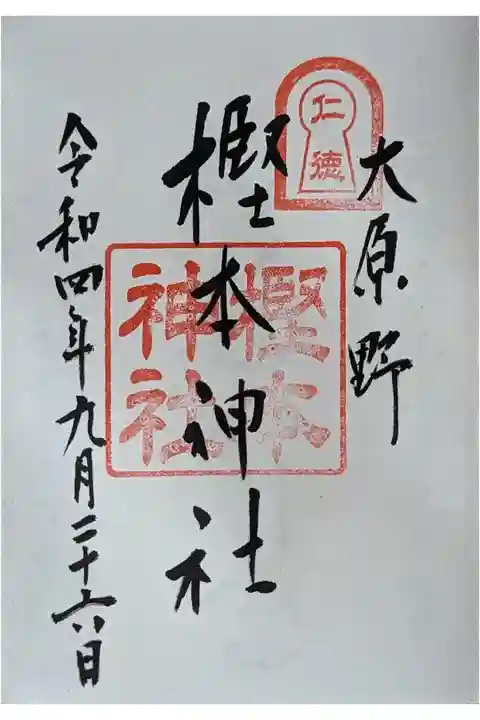 仁徳
大原野
樫本神社
樫本
神社
令和四年九月二十六日